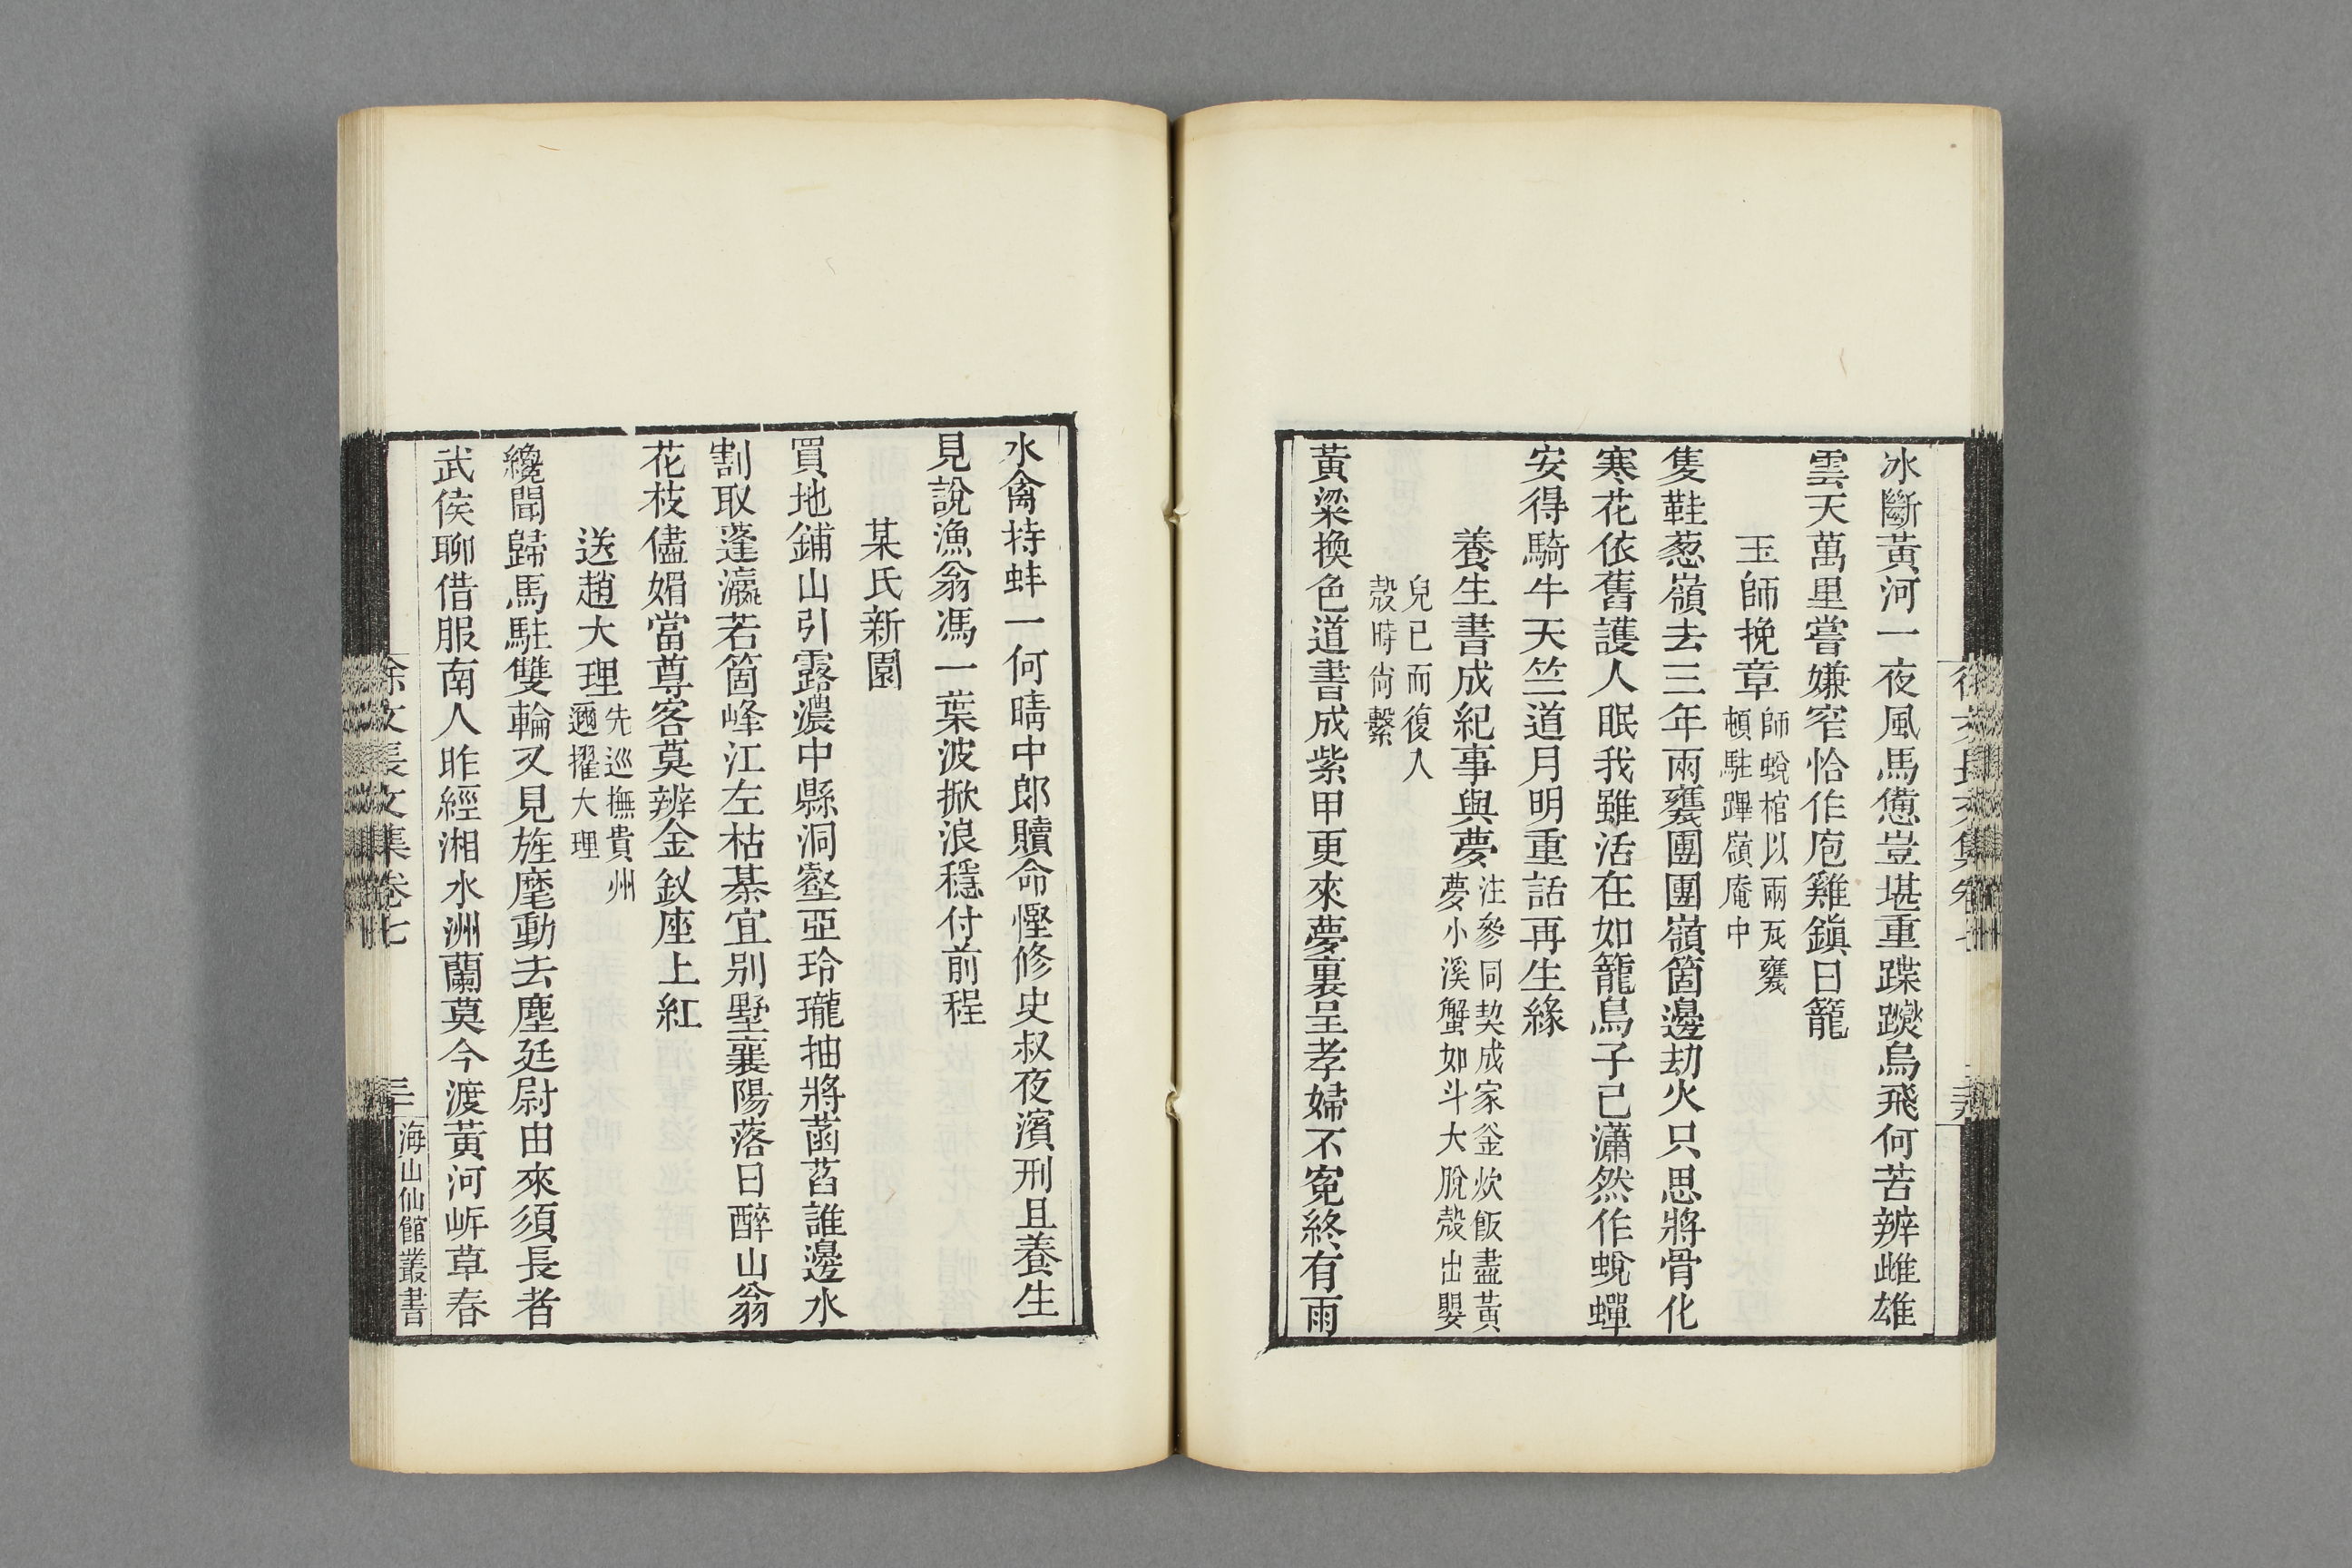 冰斷黃河一夜風馬憊豈堪重蹀躞烏飛何苦辨雌雄
雲天萬里嘗嫌窄恰作庖雞鎭日籠
玉師挽章
師蛻棺以兩瓦甕
頓駐蹕嶺庵中
隻鞋葱嶺去三年兩甕團團嶺箇邊劫火只思將骨化
寒花依舊護人眠我雖活在如籠鳥子已瀟然作蛻蟬
安得騎牛天竺道月明重話再生緣
養生書成紀事與夢
注參同契成家釜炊飯盡黃
夢小溪蟹如斗大脫殼出嬰
兒已而復人
殼時尙繫
黃粱換色道書成紫甲更來夢裏呈孝婦不寃終有雨
水禽持蚌一何晴中郎贖命慳修史叔夜濱刑且養生
見說漁翁馮一葉波掀浪穩付前程
某氏新園
買地鋪山引露濃中縣洞壑亞玲瓏抽將菡萏誰邊水
割取蓬瀛若箇峰江左枯棊宜别墅襄陽落日醉山翁
花枝儘媚當尊客莫辨金釵座上紅
送趙大理
先巡撫貴州
邇擢大理
纔聞歸馬駐雙輪又見旌麾動去塵廷尉由來須長者
武侯聊借服南人昨經湘水洲蘭莫今渡黃河岍草春
徐文長文集卷七
海山仙館叢書